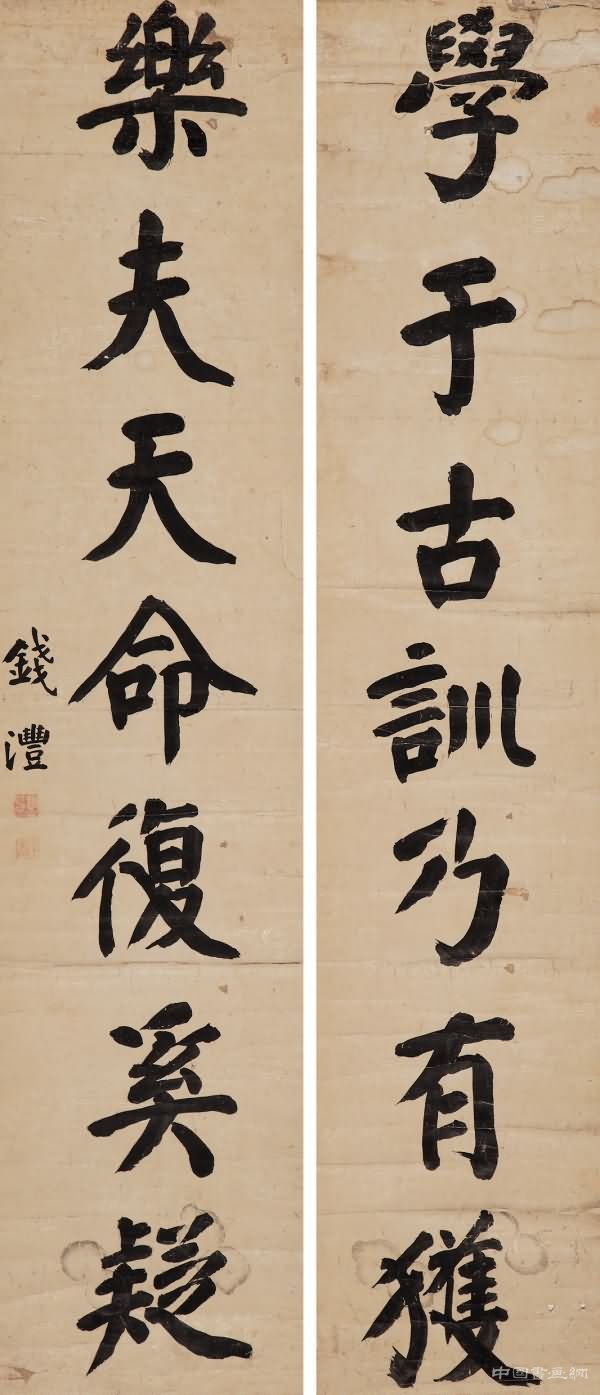 學于古訓乃有獲
樂夫天命復奚疑
錢灃
中国書画網